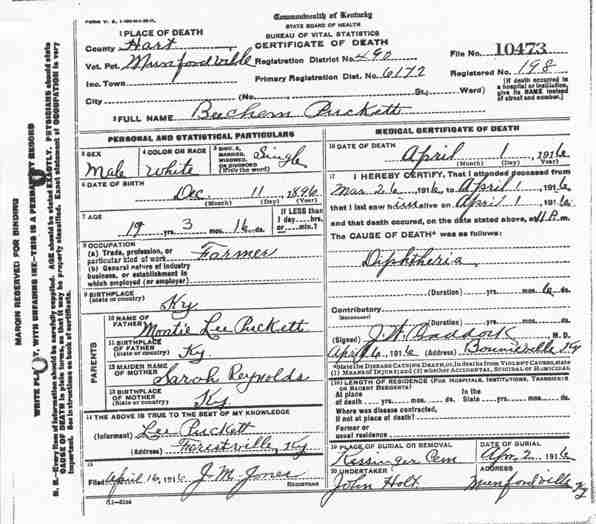 Commonwealth of Kentucky
STATE BOARD OF HEALTH
BUREAU OF VITAL STATISTICS
CERTIFICATE OF DEATH
1 PLACE OF DEATH
County Hart
Vot. Pct. Munfordville Registration District No. 490
File No. 10473
Inc. Town Primary Registration Dist. No. 6172
Registered No. 198
City (No. St.; Ward)
(If death occurred in a hospital or institution, give its NAME instead of street and number.)
2 FULL NAME Beechem Puckett
PERSONAL AND STATISTICAL PARTICULARS
3 SEX Male
4 COLOR OR RACE White
5 SINGLE, MARRIED, WIDOWED, OR DIVORCED (Write the word) Single
6 DATE OF BIRTH
Dec. 11 1896
(Month) (Day) (Year)
7 AGE
19 yrs. 3 mos. 16 ds.
If LESS than 1 day... hrs. or... min.?
8 OCCUPATION
(a) Trade, profession, or particular kind of work Farmer
(b) General nature of industry business, or establishment in which employed (or employer)
9 BIRTHPLACE
(State or country) Ky
PARENTS
10 NAME OF FATHER Montie Lee Puckett
11 BIRTHPLACE OF FATHER
(State or country) Ky
12 MAIDEN NAME OF MOTHER Sarah Reynolds
13 BIRTHPLACE OF MOTHER
(State or country) Ky
14 THE ABOVE IS TRUE TO THE BEST OF MY KNOWLEDGE
(Informant) Lee Puckett
(Address) Forestville, Ky
15
Filed April 16, 1916 J. M. Jones
REGISTRAR
MEDICAL CERTIFICATE OF DEATH
16 DATE OF DEATH
April 1 1916
(Month) (Day) (Year)
17 I HEREBY CERTIFY, That I attended deceased from
Mar. 26 1916 to April 1 1916
that I last saw him alive on April 1 1916
and that death occurred, on the date stated above, at 11 P.m.
The CAUSE OF DEATH* was as follows:
Diphtheria
(Duration) yrs. mos. 6 ds.
Contributory
(Duration) yrs. mos. ds.
(Signed) J. W. M. D.
April 6, 1916 (Address) Bonnieville Ky
*State the DISEASE CAUSING DEATH, or, in deaths from VIOLENT CAUSES, state (1) MEANS OF INJURY; and (2) whether ACCIDENTAL, SUICIDAL or HOMICIDAL.
18 LENGTH OF RESIDENCE (FOR HOSPITALS, INSTITUTIONS, TRANSIENTS OR RECENT RESIDENTS)
At place of death yrs. mos. ds. In the State yrs. mos. ds.
Where was disease contracted, if not at place of death?
Former or usual residence
19 PLACE OF BURIAL OR REMOVAL
Kessinger Cem
DATE OF BURIAL
Apr. 2 1916
20 UNDERTAKER
John Holt
ADDRESS
Munfordville Ky
MARGIN RESERVED FOR BINDING
WRITE PLAINLY, WITH UNFADING INK—THIS IS A PERMANENT RECORD
N. B.—Every item of information should be carefully supplied. AGE should be stated EXACTLY. PHYSICIANS should state CAUSE OF DEATH in plain terms, so that it may be properly classified. Exact statement of OCCUPATION is very important. See instructions on back of certificate.